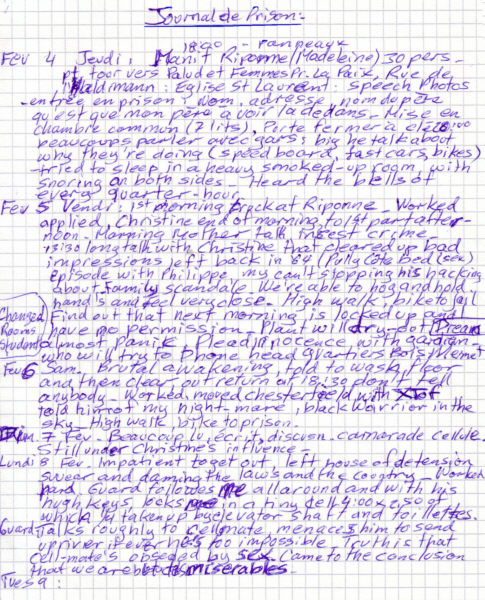 Journal de Prison -
18:00 - panneaux
Fev 4 Jeudi: Manif Riponne (Madeleine) 30 pers -
pt. tour vers Palud et Femmes Pr. La Paix, Rue de
Haldimann: Eglise St Laurent: speech Photos
- entrée en prison: Nom, adresse, nom de père
qu'est que mon père a voir la dedans - Mise en
chambre commun (7 lits), Porte fermer à clé
beaucoups parler avec gars: big he talk about
why they're doing (speed board, fast cars, bikes)
- tried to sleep in a heavy smoked-up room, with
snoring on both sides - Heard the bells of
every quarter-hour.
Fev 5 Vendr: 1st morning back at Riponne - Worked
applied, Christine end of morning to 1st part after-
noon - Morning Mother talk, incest crime
15:30 long talk with Christine that cleared up bad
impressions left back in '84 (Pully Côte Bed (sex)
episode with Philippe, my can't stopping his hacking
about family scandale. We're able to hog and hold
hand's and feel very close - High walk, bike to jail
Changed Find out that next morning is locked up and
Rooms have no permission - Plant will dry-out Dream
Student almost panik Plead innocence with gardien -
who will try to phone head quartiers Bois Mermet
Fev 6 Sam. Brutal awakening, told to wash floor
and then clear out return at 18:30 don't tell
anybody - Worked, moved chester field with
told him of my night-mare, black Warrior in the
sky - High walk, bike to prison.
Dim. 7 Fev - Beaucoup lu, écrit, discusn. camarade cellule.
Still under Christine's influence -
Lundi 8 Fev - Impatient to get out left house of detension
swear and daming the law's and the country - Worked
hard, Guard followes me all around and with his
hugh keys, locks me in a tiny dely looke's oot
which is taken up by elevator shaft and toillettes.
Guard Talks roughly to cellmate, menaces him to send
up river if ever he's to impossible. Truth is that
cell-mate's obseded by sex - Came to the conclusion
that we are miserables.
Tues 9: